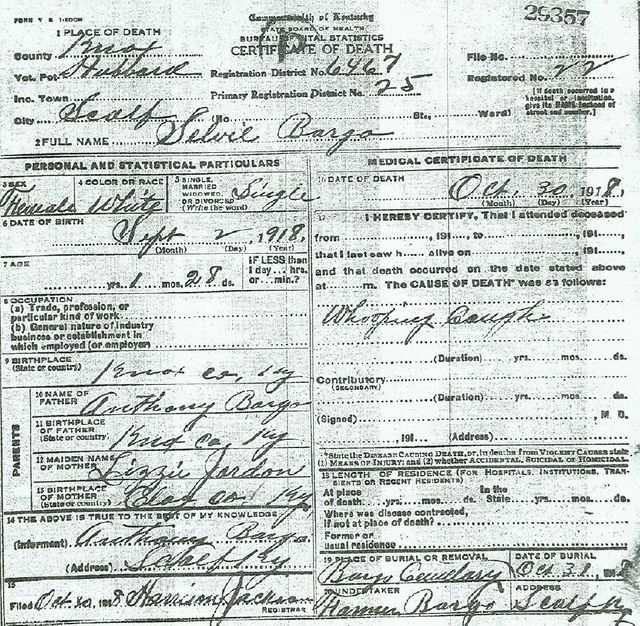 FORM V S 1-500M
Commonwealth of Kentucky
29357
STATE BOARD OF HEALTH
BUREAU OF VITAL STATISTICS
CERTIFICATE OF DEATH
1 PLACE OF DEATH
County Knox
Vot. Pct. Hubbard
Inc. Town
City Scalf (No. St., Ward)
Registration District No. 6467
Primary Registration District No. 25
File No.
Registered No. 22
[If death occurred in a hospital or institution, give its NAME instead of street and number.]
2 FULL NAME Selvie Bargo
PERSONAL AND STATISTICAL PARTICULARS
3 SEX Female
4 COLOR OR RACE White
5 SINGLE, MARRIED WIDOWED, OR DIVORCED (Write the word) Single
6 DATE OF BIRTH
Sept 2, 1918,
(Month) (Day) (Year)
7 AGE
yrs. 1 mos. 28 ds.
IF LESS than 1 day... hrs. or... min.?
8 OCCUPATION
(a) Trade, profession, or particular kind of work
(b) General nature of industry business or establishment in which employed (or employer)
9 BIRTHPLACE
(State or country) Knox co, Ky
PARENTS
10 NAME OF FATHER Anthony Bargo
11 BIRTHPLACE OF FATHER (State or country) Knox co, Ky
12 MAIDEN NAME OF MOTHER Lizzie
13 BIRTHPLACE OF MOTHER (State or country) Clay co. Ky
14 THE ABOVE IS TRUE TO THE BEST OF MY KNOWLEDGE
(Informant) Anthony Bargo
(Address) Scalf Ky
15
Filed Oct 30 1918 Harrison Jackson
REGISTRAR
MEDICAL CERTIFICATE OF DEATH
16 DATE OF DEATH
Oct. 30, 1918,
(Month) (Day) (Year)
17 I HEREBY CERTIFY, That I attended deceased
from , 191 , to , 191 ,
that I last saw h alive on , 191 ,
and that death occurred on the date stated above
at m. The CAUSE OF DEATH* was as follows:
Whooping Cough
(Duration) yrs. mos. ds.
Contributory
(SECONDARY)
(Duration) yrs. mos. ds.
(Signed) , M. D.
, 191 (Address)
*State the DISEASE CAUSING DEATH, or, in deaths from VIOLENT CAUSES state (1) MEANS OF INJURY; and (2) whether ACCIDENTAL, SUICIDAL OR HOMICIDAL.
18 LENGTH OF RESIDENCE (FOR HOSPITALS, INSTITUTIONS, TRANSIENTS OR RECENT RESIDENTS)
At place of death. yrs. mos. ds. In the State, yrs. mos. ds.
Where was disease contracted, if not at place of death?
Former or usual residence
19 PLACE OF BURIAL OR REMOVAL
Bargo Cemetary
DATE OF BURIAL
Oct 31, 1918
20 UNDERTAKER
Bargo
ADDRESS
Scalf Ky